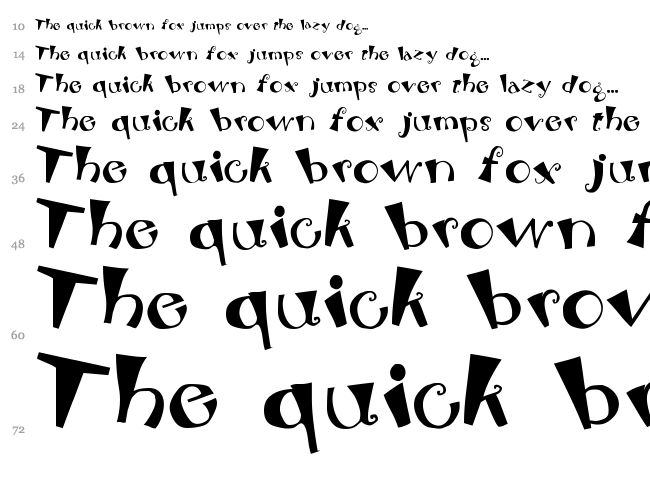 10 The quick brown fox jumps over the lazy dog...
14 The quick brown fox jumps over the lazy dog...
18 The quick brown fox jumps over the lazy dog...
24 The quick brown fox jumps over the
36 The quick brown fox jur
48 The quick brown f
60 The quick brov
72 The quick br